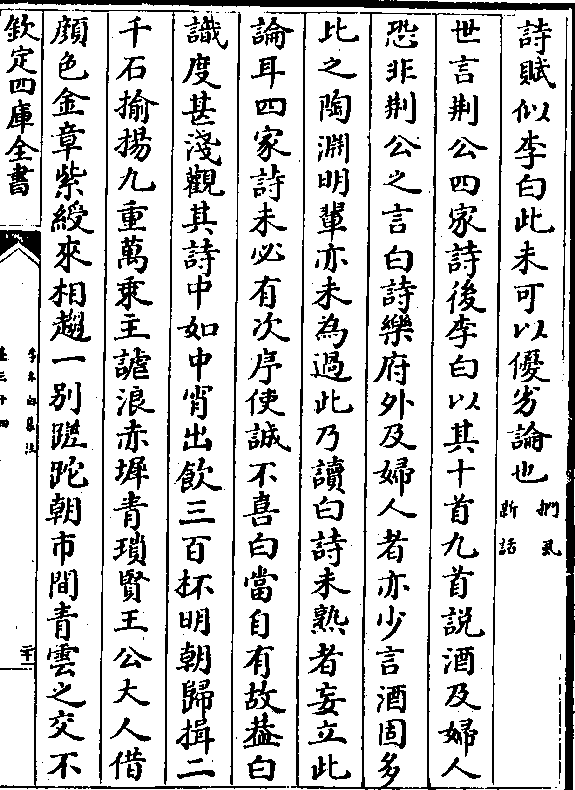 詩賦似李白此未可以優劣論也捫虱
新話
世言荆公四家詩後李白以其十首九首説酒及婦人
恐非荆公之言白詩樂府外及婦人者亦少言酒固多
比之陶淵明輩亦未為過此乃讀白詩未熟者妄立此
論耳四家詩未必有次序使誠不喜白當自有故葢白
識度甚淺觀其詩中如中宵出飲三百杯明朝歸揖二
千石揄揚九重萬乗主謔浪赤墀青瑣賢王公大人借
顔色金章紫綬來相趨一别蹉跎朝市間青雲之交不
欽定四庫全書
李太白集注
卷三十四
二十